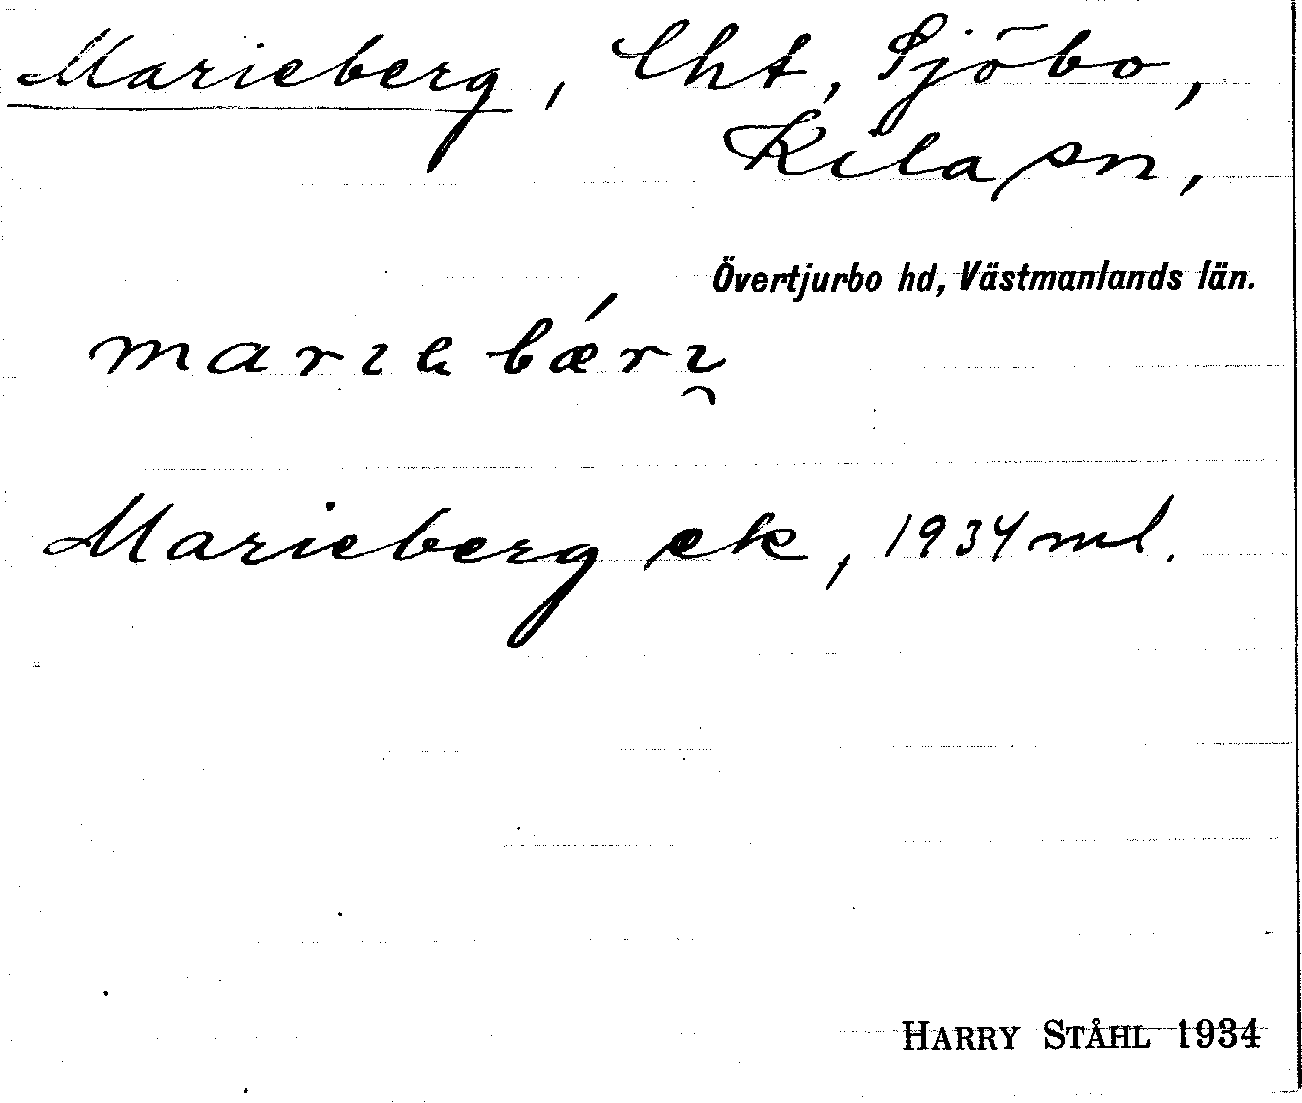 Marieberg, lht, Sjöbo,
Kila sn,
Övertjurbo hd, Västmanlands län.
Marieberg ek, 1934 ml.
HARRY STÅHL 1934